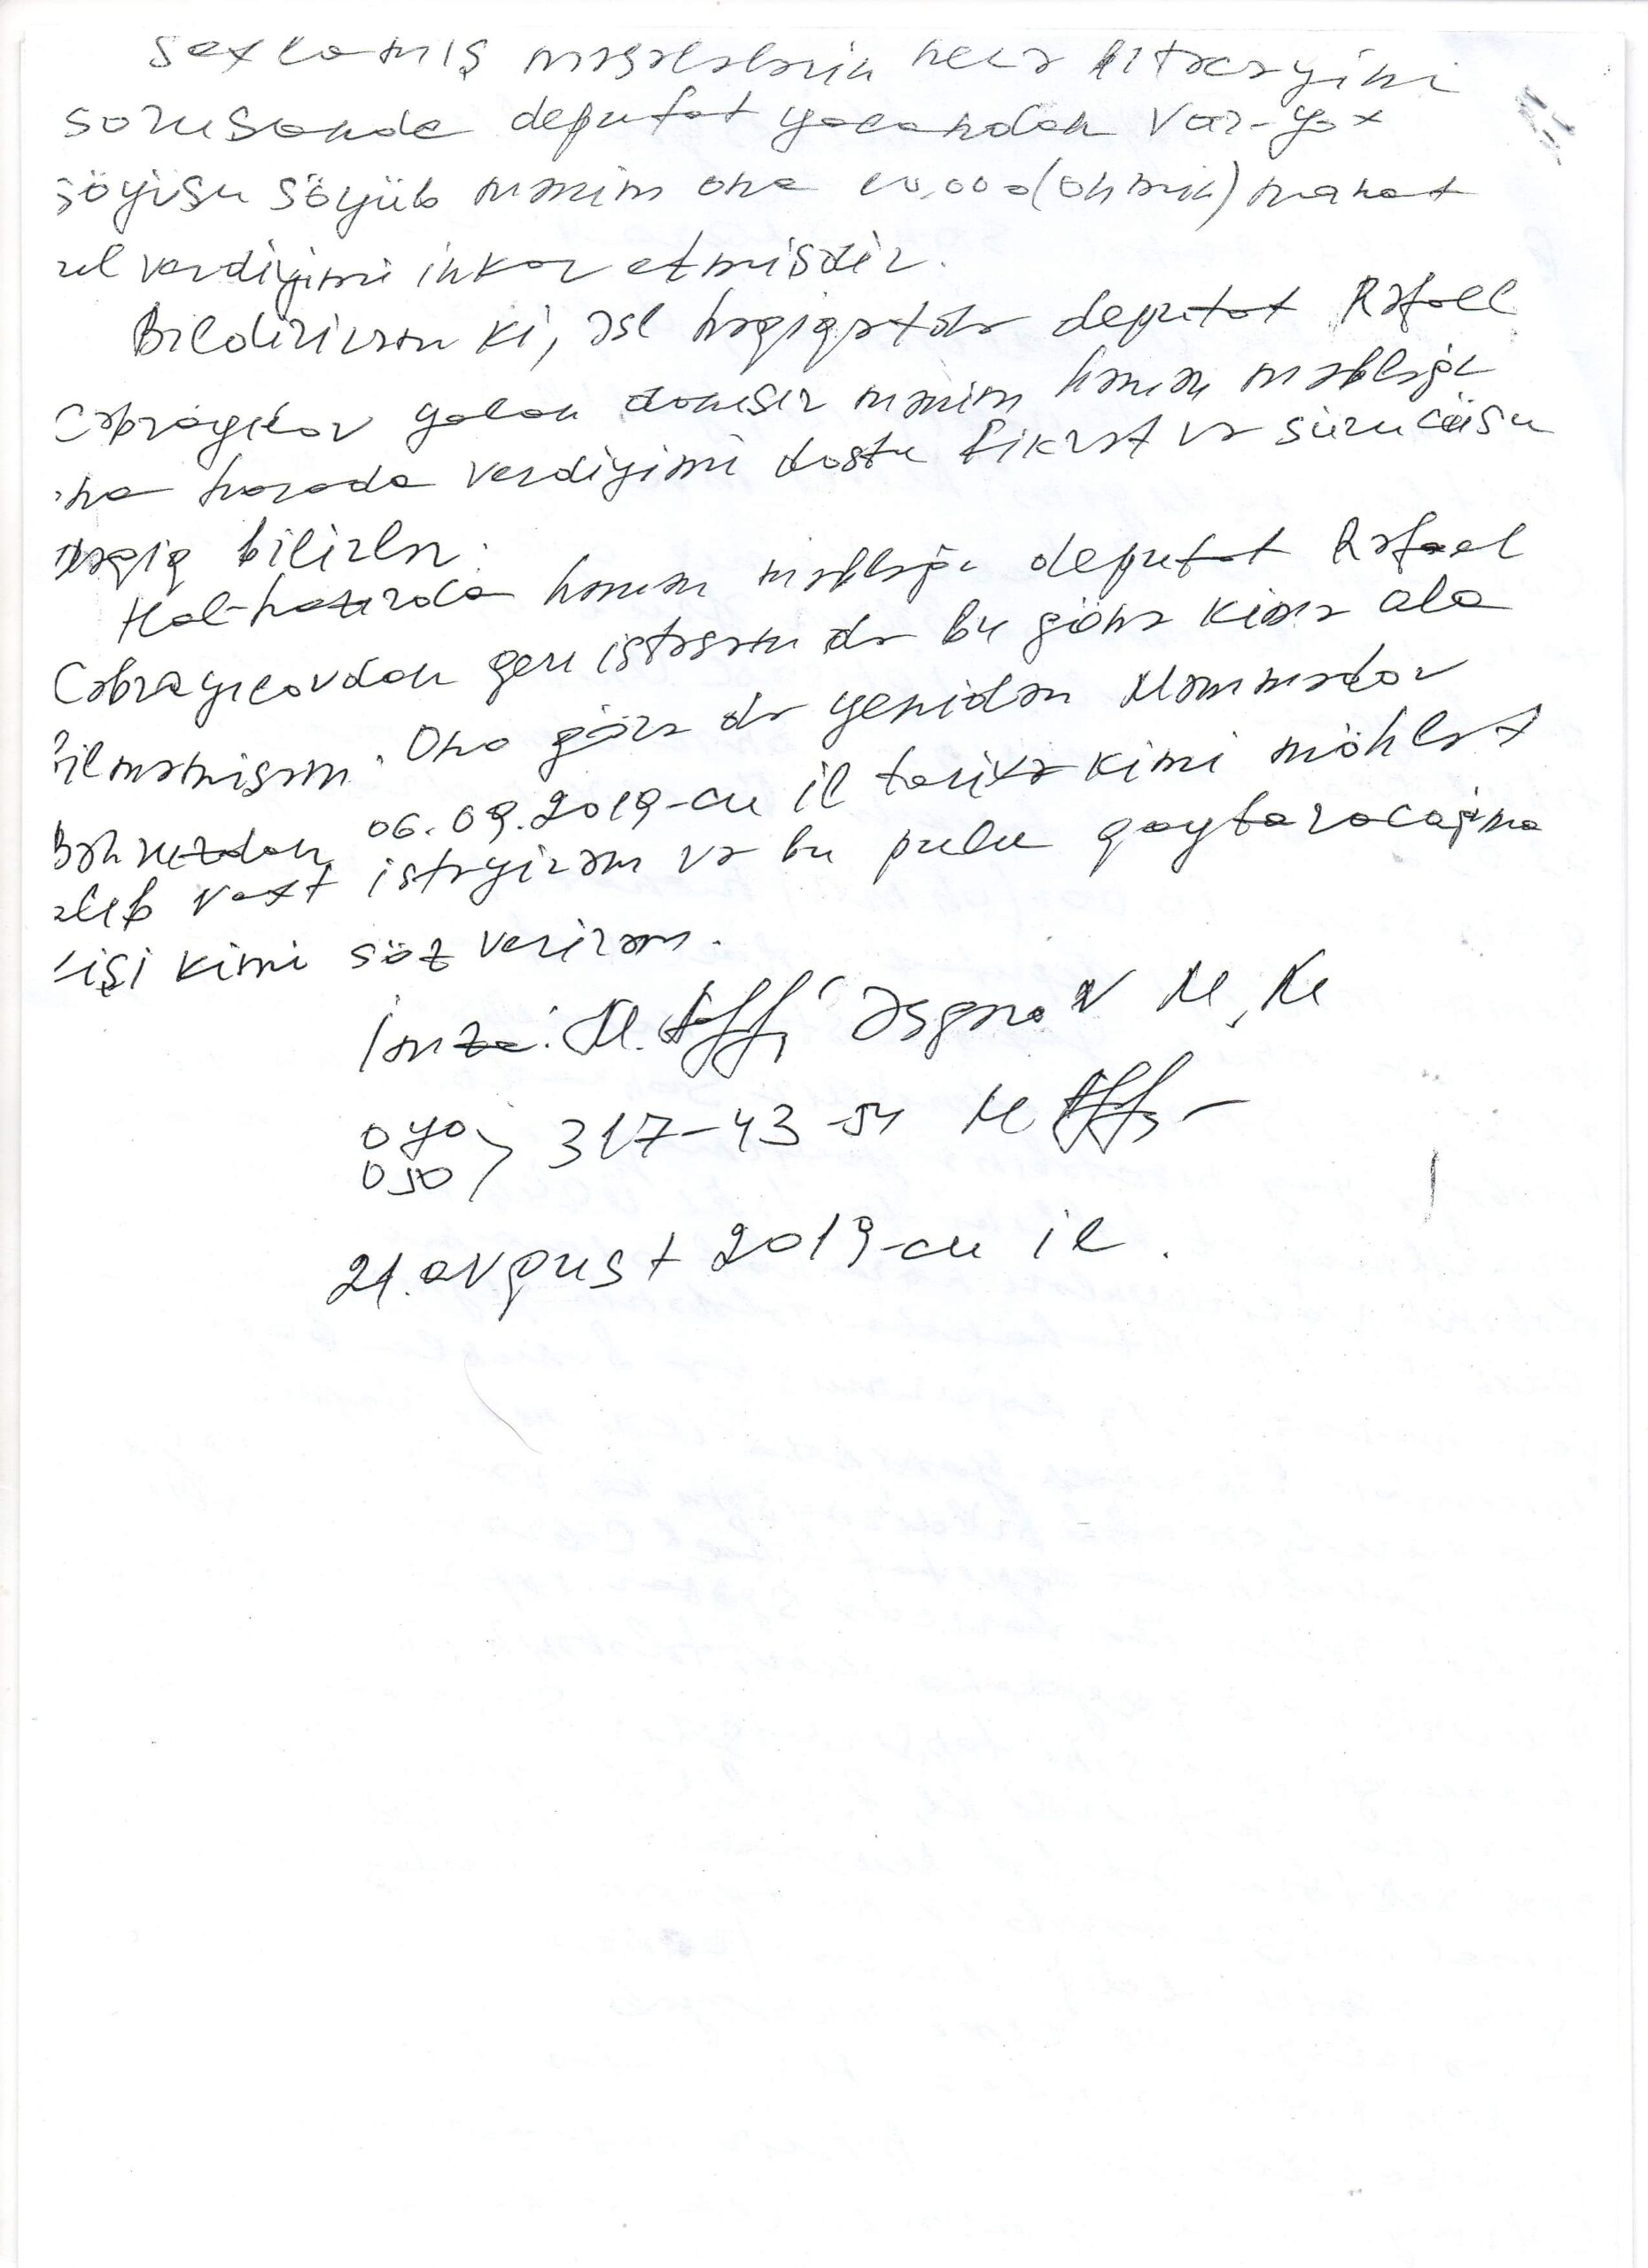 saxlamış məsələlərin necə bitəcəyini
soruşanda deputat yalandan var-yox
söyüşü söyüb mənim ona 10.000 (on min) manat
verdiyimi inkar etmişdir.
Bildirirəm ki, əsl həqiqətdə deputat Rafael
Cəbrayılov yalan danışır mənim həmin məbləği
harada verdiyimi dostu Fikrət və sürücüsü
dəqiq bilirlər.
Hal-hazırda həmin məbləği deputat Rafael
Cəbrayılovdan geri istəsəm də bu günə kimi ala
bilməmişəm. Ona görə də yenidən Məmmədov
06.09.2019-cu il tarixə kimi möhlət
vaxt istəyirəm və bu pulu qaytaracağıma
kişi kimi söz verirəm.
İmza: Əsgərov M. M.
040
050 317-43-54
21.avqust 2019-cu il.